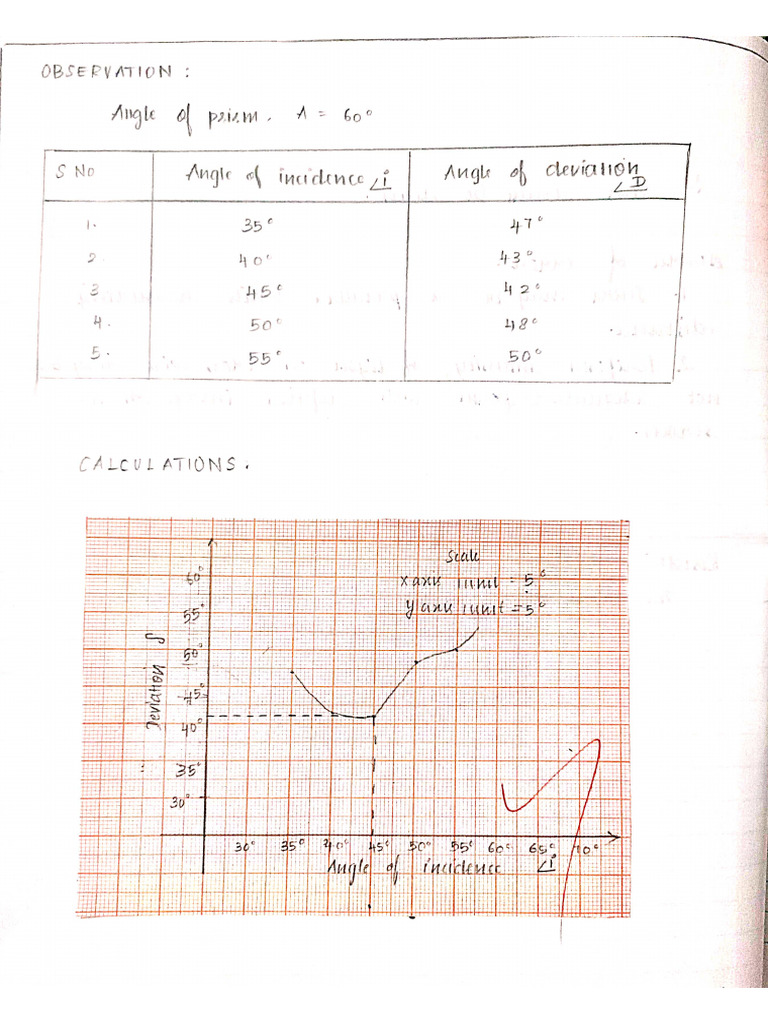 OBSERVATION :
Angle of prism, A = 60°
S No Angle of incidence ∠i Angle of deviation ∠D
1. 35° 47°
2. 40° 43°
3 45° 42°
4. 50° 48°
5. 55° 50°
CALCULATIONS :
Scale
x axis 1unit = 5°
y axis 1unit = 5°
60°
55°
50°
45°
40°
35°
30°
Deviation δ
30° 35° 40° 45° 50° 55° 60° 65° 70°
Angle of incidence ∠i